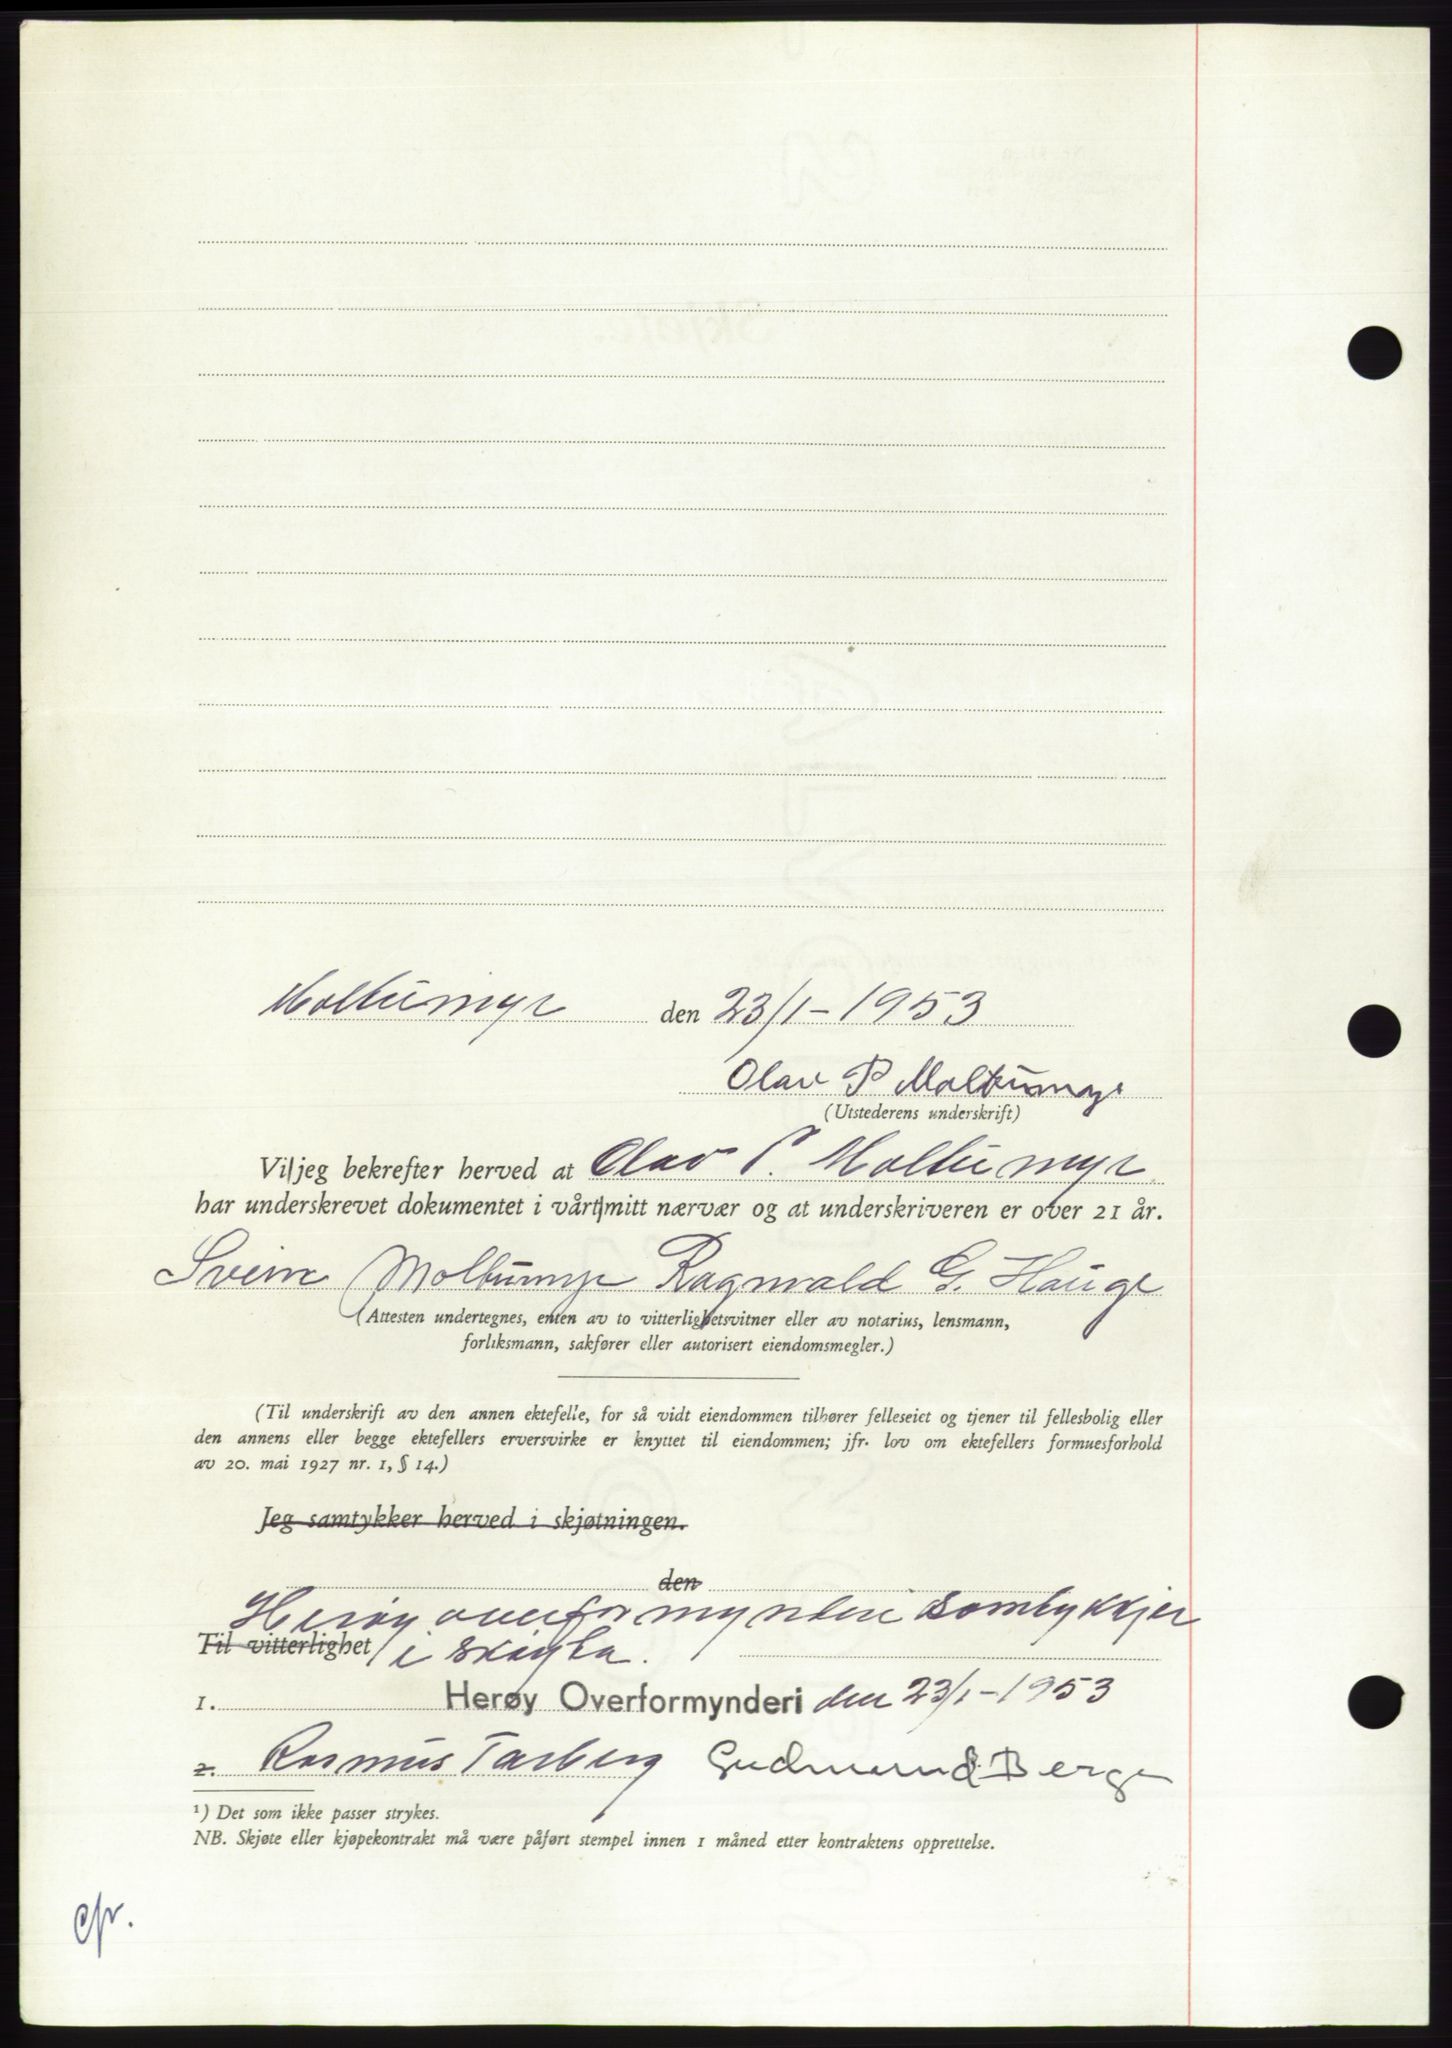 Moltumyr den 23/1-1953
Olav P Moltumyr
(Utstederens underskrift)
Vi/jeg bekrefter herved at Olav P. Moltumyr
har underskrevet dokumentet i vårt/mitt nærvær og at underskriveren er over 21 år.
Svein Moltumyr Ragnvald G. Hauge
(Attesten undertegnes, enten av to vitterlighetsvitner eller av notarius, lensmann,
forliksmann, sakfører eller autorisert eiendomsmegler.)
(Til underskrift av den annen ektefelle, for så vidt eiendommen tilhører felleseiet og tjener til fellesbolig eller
den annens eller begge ektefellers erversvirke er knyttet til eiendommen; jfr. lov om ektefellers formuesforhold
av 20. mai 1927 nr. 1, § 14.)
Jeg samtykker herved i skjøtningen.
den
Herøy overformynderi samtykkjer
Til vitterlighet i skøyta.
1. Herøy Overformynderi den 23/1-1953
2. Rasmus Tarberg Gudmund Berge
¹) Det som ikke passer strykes.
NB. Skjøte eller kjøpekontrakt må være påført stempel innen 1 måned etter kontraktens opprettelse.
cfr.